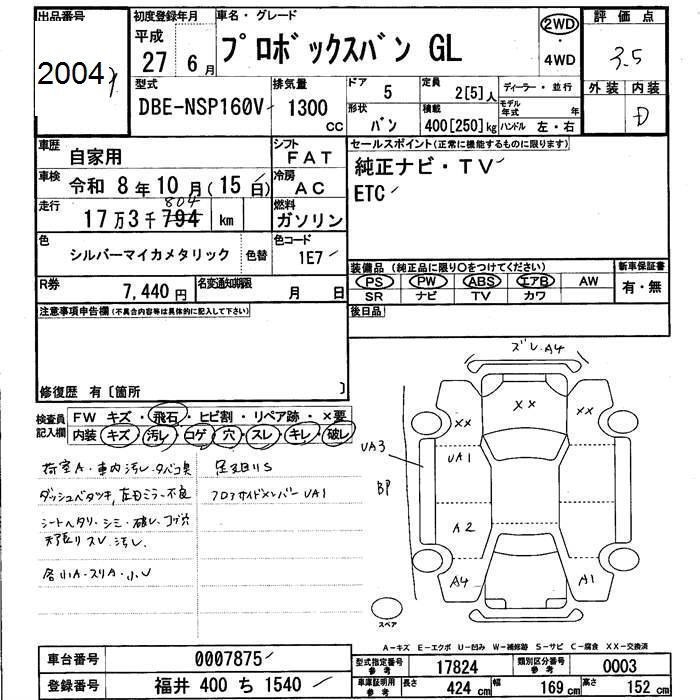 出品番号
2004
初度登録年月
平成
27年 6月
車名・グレード
プロボックスバン GL
2WD
・
4WD
評価点
3.5
外装 内装
D
型式
DBE-NSP160V
排気量
1300
cc
ドア
5
定員
2[5]人
形状
バン
積載
400[250]kg
ディーラー・並行
モデル年式 年
ハンドル 左・右
車歴
自家用
シフト
FAT
セールスポイント(正常に機能するものに限ります)
純正ナビ・TV
ETC
車検
令和 8年10月(15日)
冷房
AC
走行
804
17万3千794 km
燃料
ガソリン
色
シルバーマイカメタリック
色替
色コード
1E7
装備品 (純正品に限り○をつけてください)
PS PW ABS エアB AW
SR ナビ TV カワ
新車保証書
有・無
R券
7,440円
名変通知期限
月 日
後日品
注意事項申告欄(不具合内容等は具体的に記入して下さい)
修復歴 有〔箇所 〕
検査員記入欄
FW キズ・飛石・ヒビ割・リペア跡・×要
内装 キズ・汚レ・コゲ・穴・スレ・キレ・破レ
荷室A・車内汚レ・タバコ臭
ダッシュベタツキ,左ドミラー不良
シートヘタリ・シミ・破レ・コゲ穴
天張りスレ,汚レ.
各小A・スリA・小U
足廻りS
フロアサイドメンバーUA1
ズレ.A4
XX
XX
XX
UA3
UA1
BP
A2
A4
A1
スペア
A-キズ E-エクボ U-凹み W-補修跡 S-サビ C-腐食 XX-交換済
車台番号
0007875
型式指定番号
参考
17824
類別区分番号
参考
0003
登録番号
福井 400 ち 1540
車庫証明用
参考
長さ 424 cm
幅 169 cm
高さ 152 cm